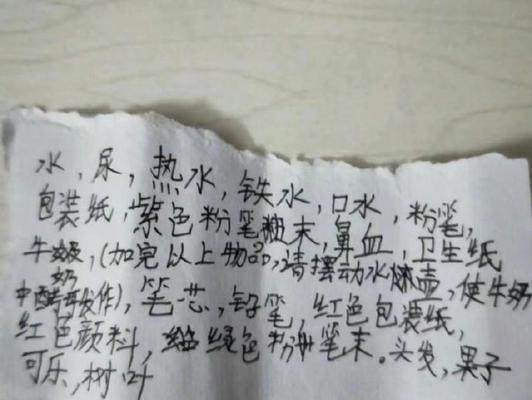 水，尿，热水，铁水，口水，粉笔，
包装纸，紫色粉笔粗末，鼻血，卫生纸
牛奶，(加完以上物品，请摆动水壶，使牛奶
中酵母发作)，笔芯，铅笔，红色包装纸，
红色颜料，绿色粉笔末。头发，果子
可乐，树叶